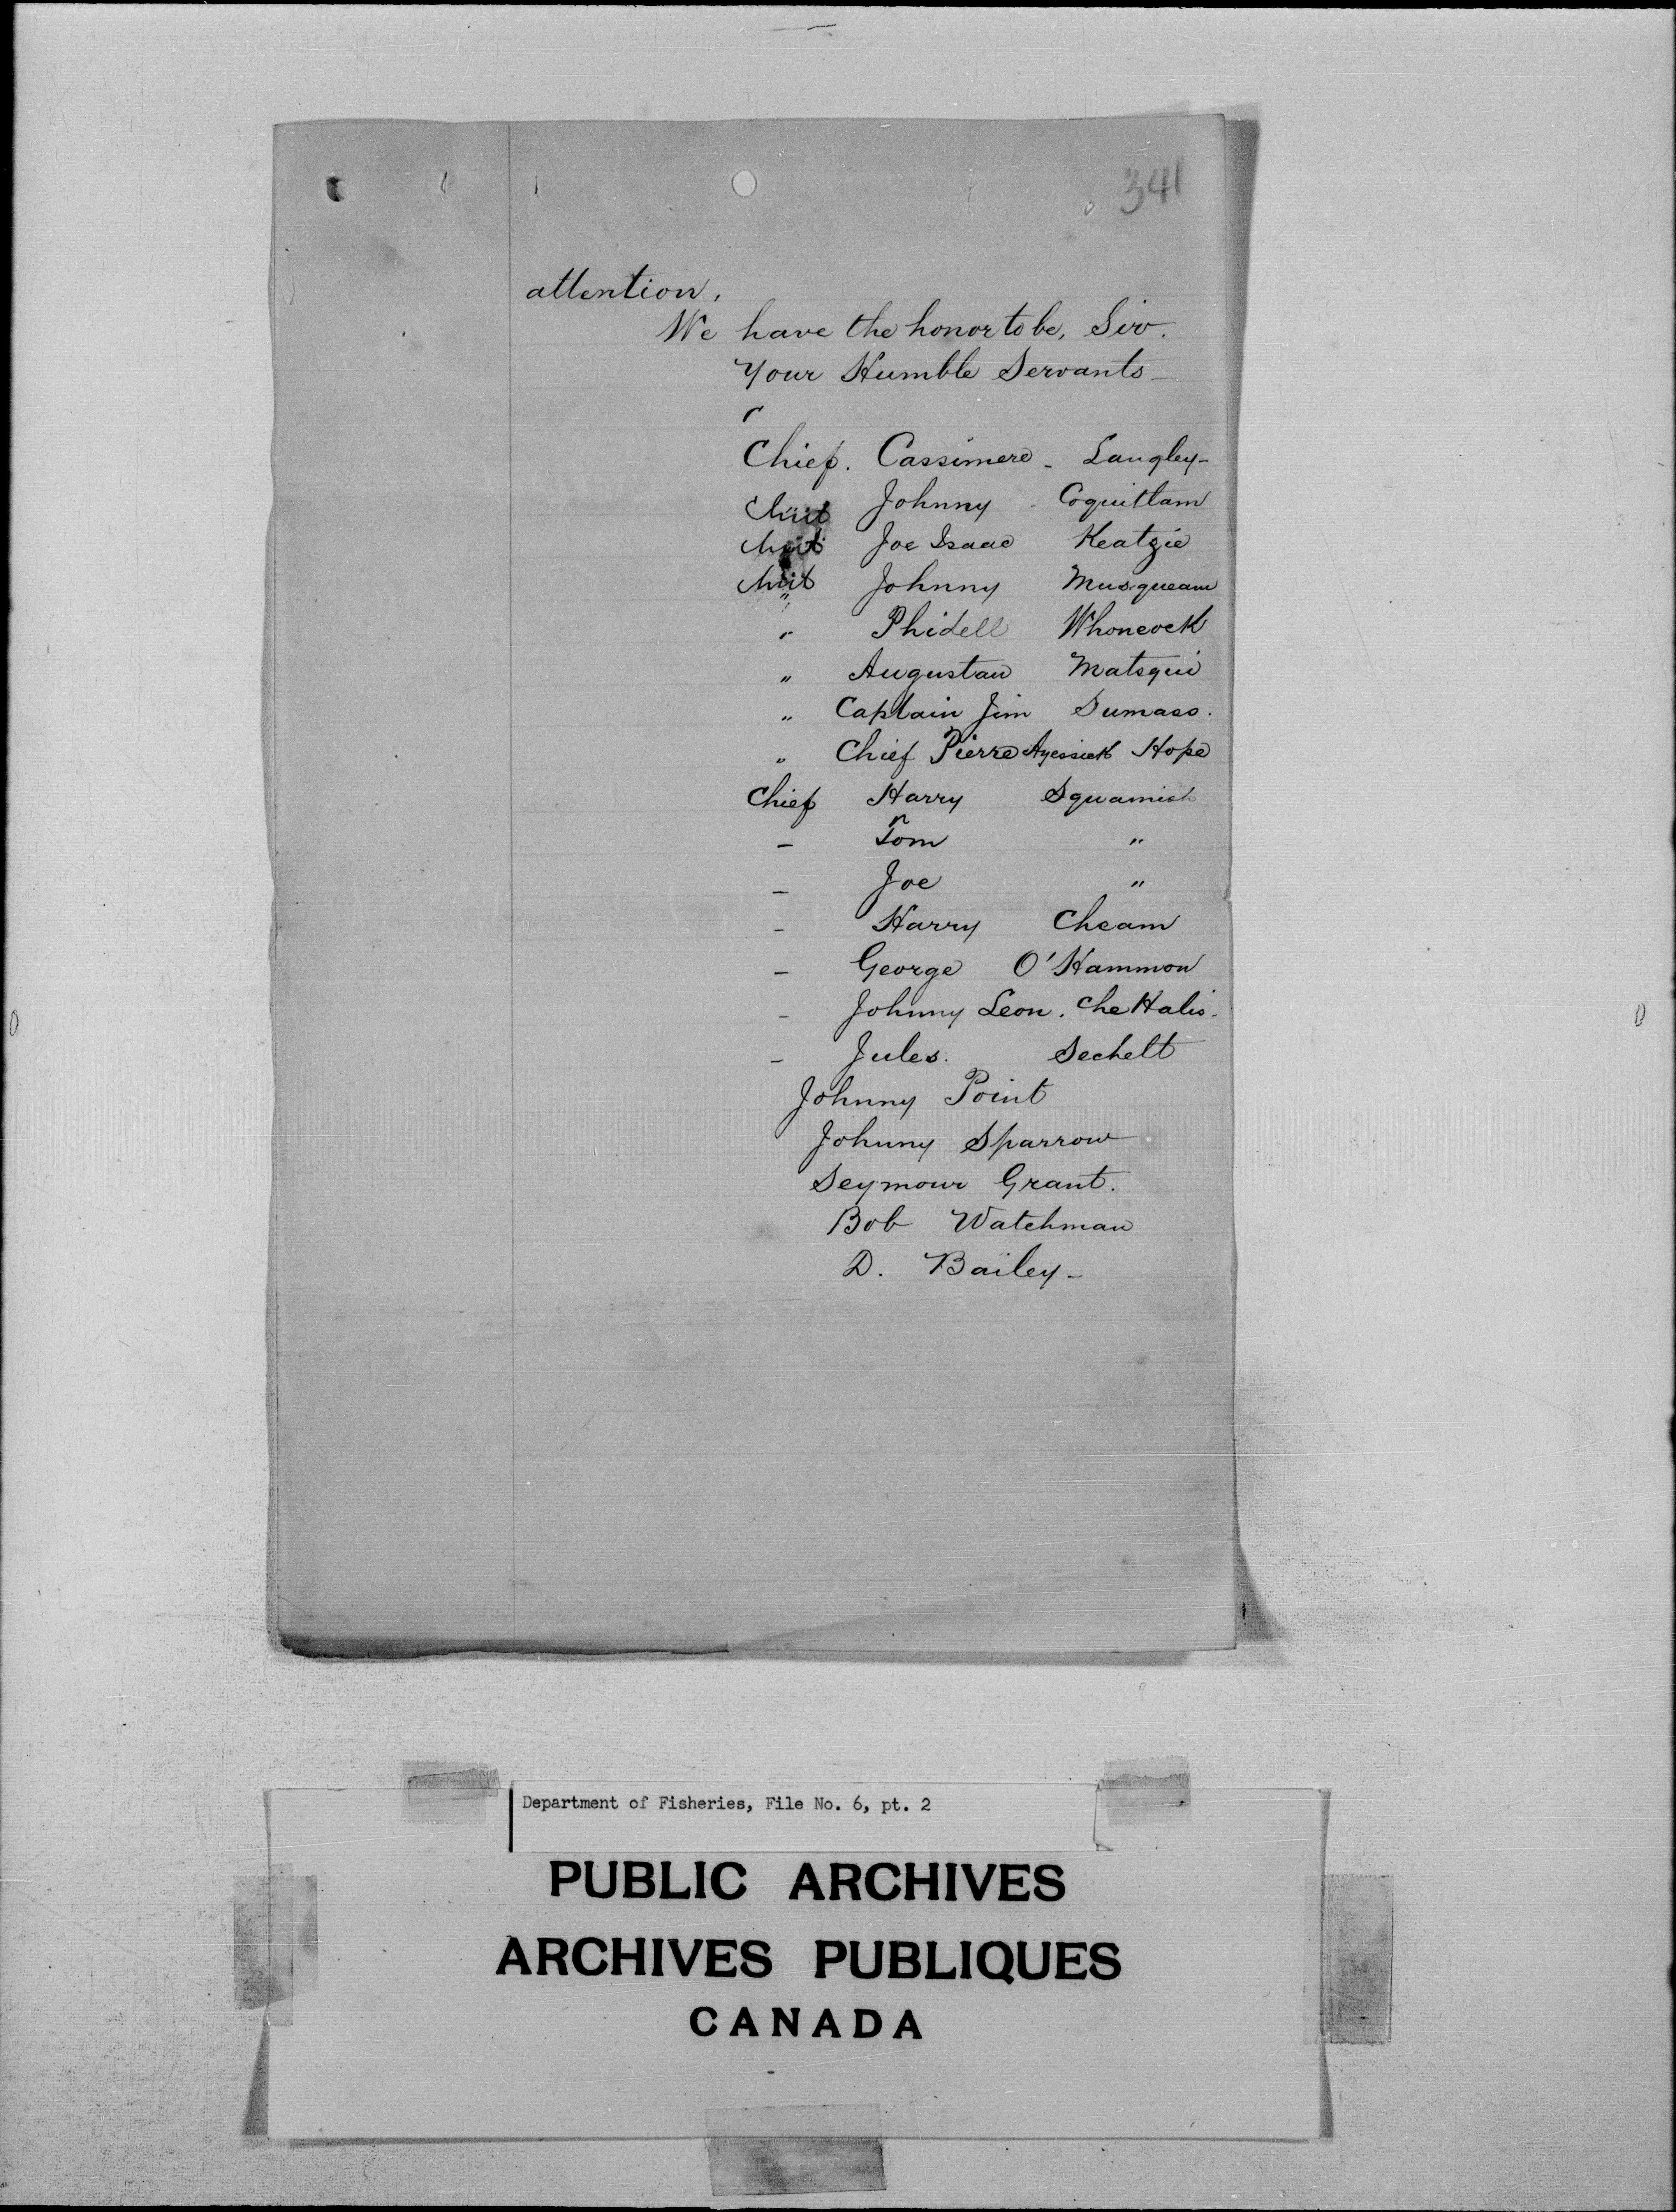 341
attention.
We have the honor to be, Sir.
Your Humble Servants -
Chief. Cassimere - Langley -
Chief Johnny - Coquitlam
Chief Joe Isaac Keatzie
Chief Johnny Musqueam
" Phidell Whonock
" Augustan Matsqui
" Captain Jim Sumass.
" Chief Pierre Ayessick Hope
Chief Harry Squamish
- Tom "
- Joe "
- Harry Cheam
- George O'Hammon
- Johnny Leon. CheHalis.
- Jules. Sechelt
Johnny Point
Johnny Sparrow
Seymour Grant.
Bob Watchman
D. Bailey -
Department of Fisheries, File No. 6, pt. 2
PUBLIC ARCHIVES
ARCHIVES PUBLIQUES
CANADA